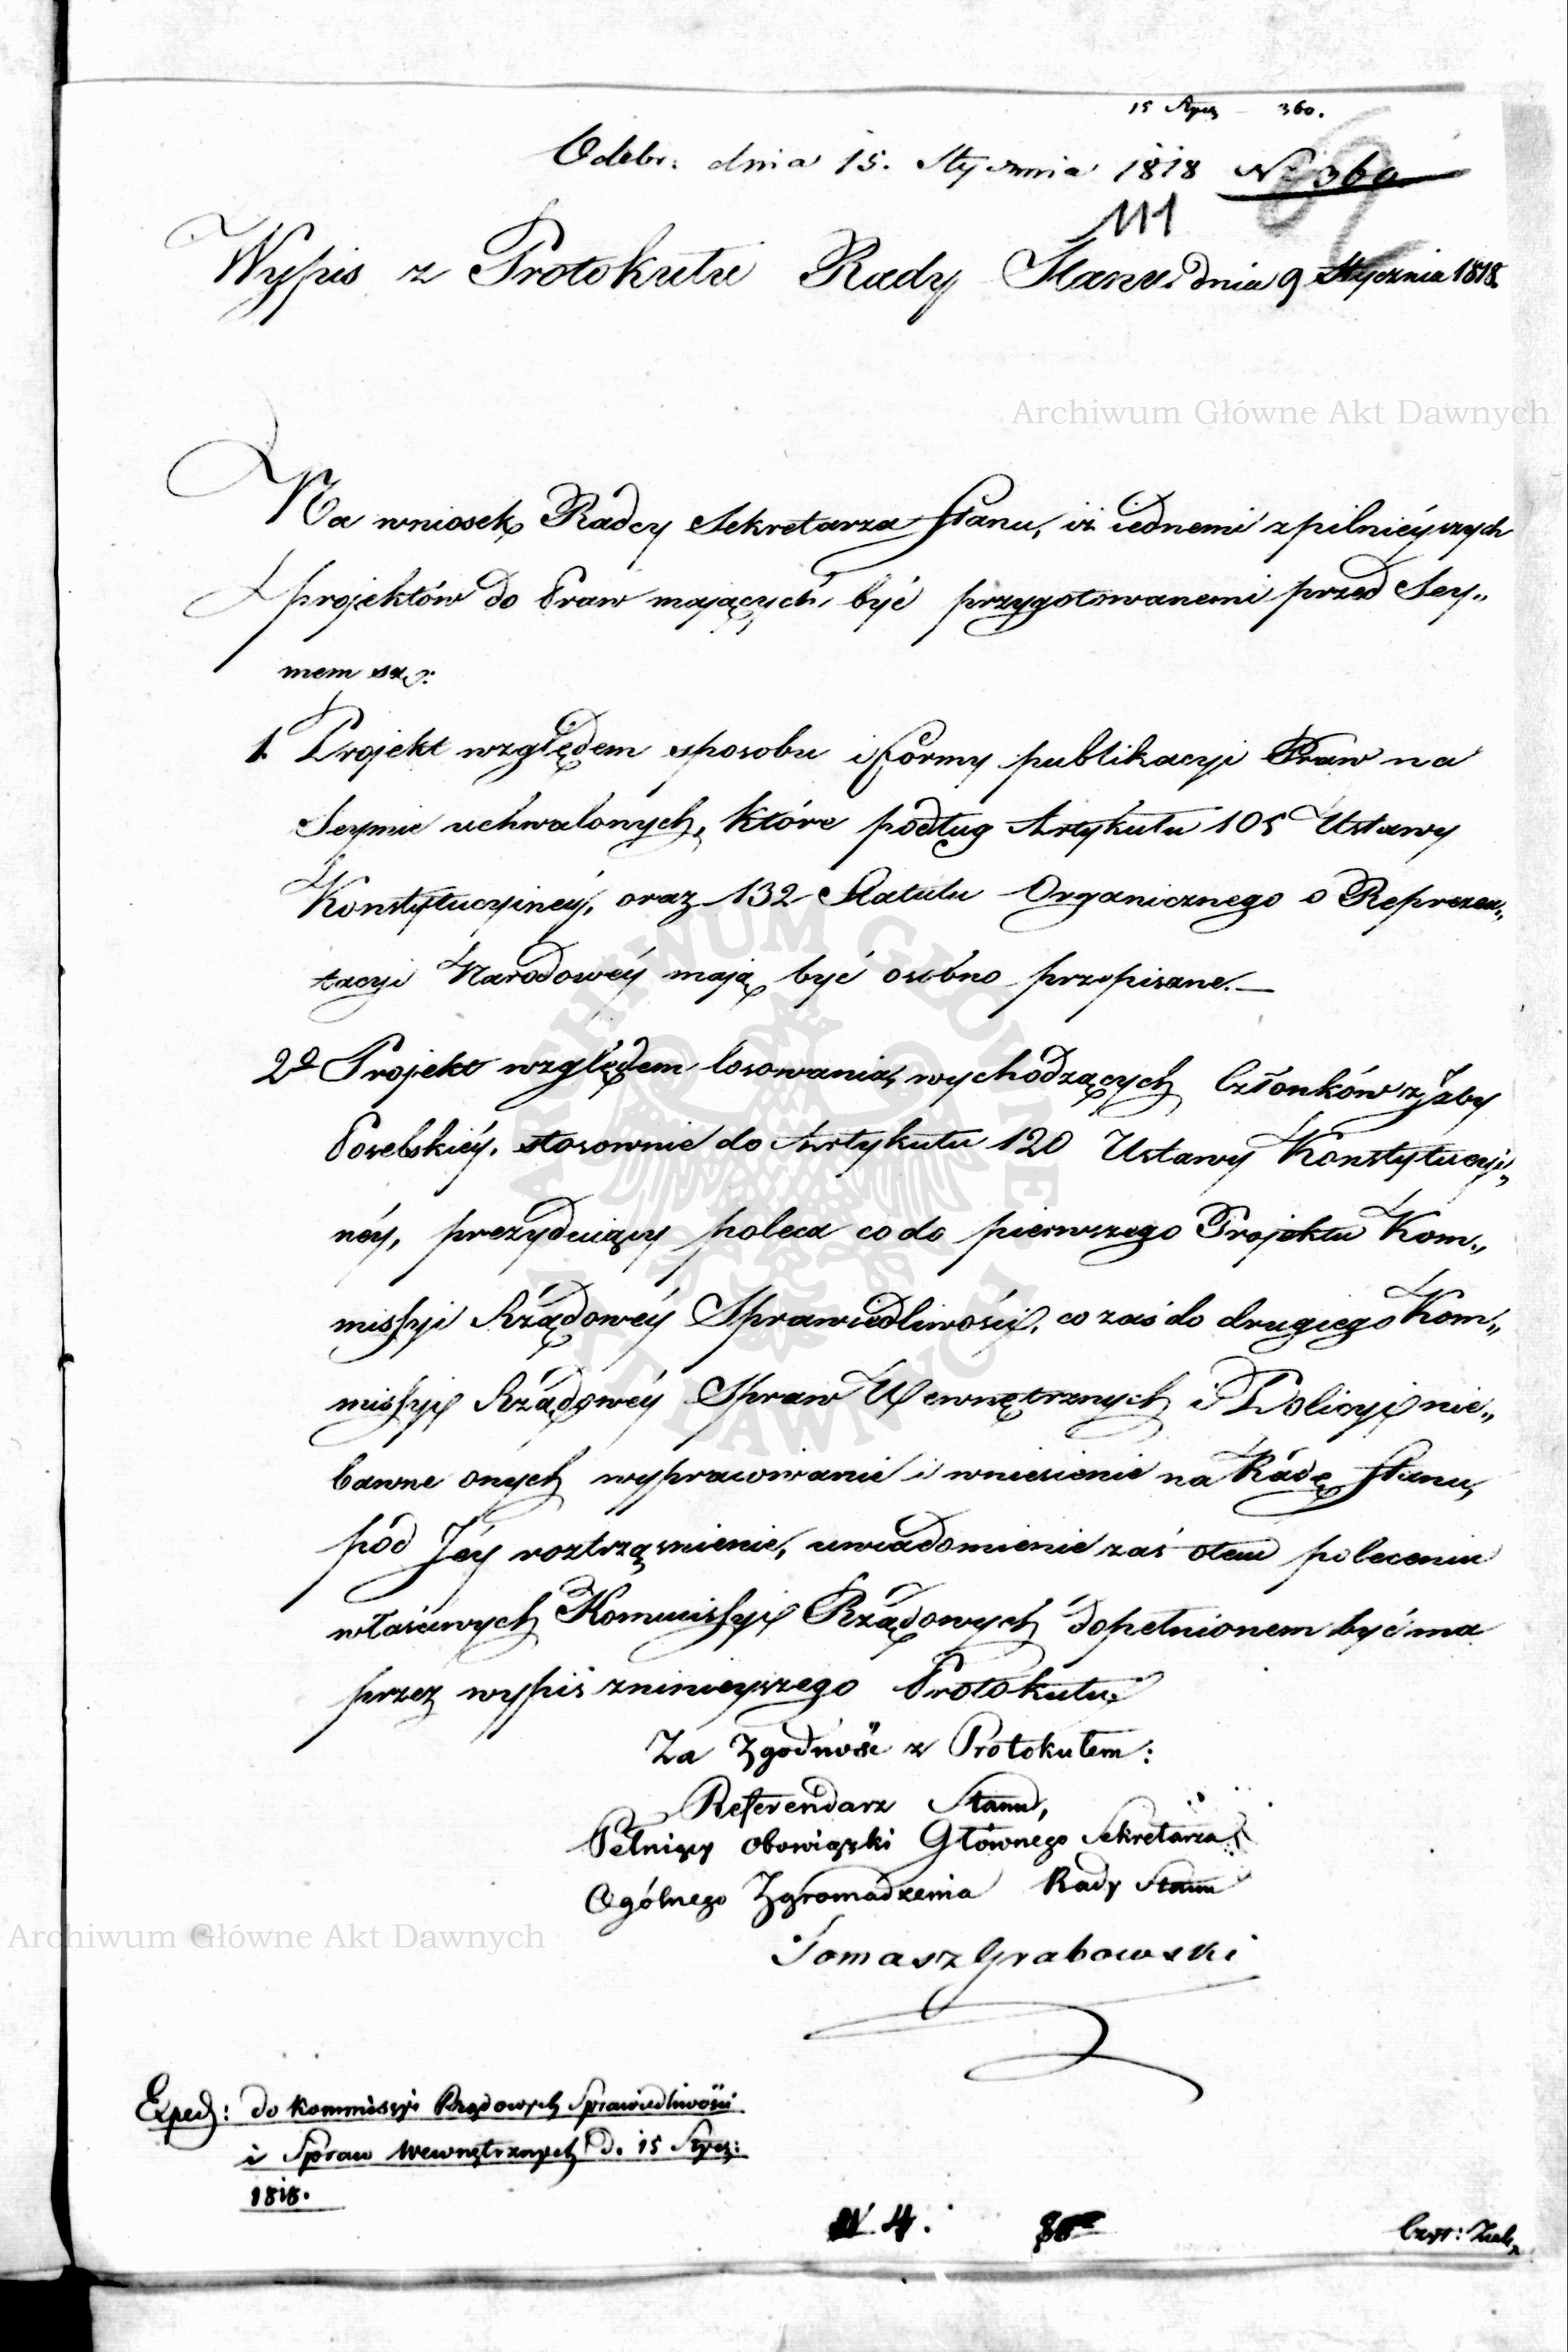 15 Stycz 360.
Odebr: dnia 15. Stycznia 1818 Nr 360
111
Wypis z Protokułu Rady Stanu dnia 9 Stycznia 1818.
Archiwum Główne Akt Dawnych
Na wniosek Radcy Sekretarza Stanu, iż iednemi z pilnieyszych
projektów do Praw mających być przygotowanemi przed Sey„
mem są:
1. Projekt względem sposobu i formy publikacyi Praw na
Seymie uchwalonych, które podług Artykułu 105 Ustawy
Konstytucyiney, oraz 132 Statutu Organicznego o Reprezen„
tacyi Narodowéy mają być osobno przepisane.—
2o Projekt względem losowania wychodzących Członków z Jzby
Poselskiéy, stosownie do Artykułu 120 Ustawy Konstytucyi„
néy, prezyduiący poleca co do pierwszego Projektu Kom„
missyi Rządowéy Sprawiedliwości, co zaś do drugiego Kom„
missyi Rządowéy Spraw Wewnętrznych i Policyi nie„
bawne onych wypracowanie i wniesienie na Radę Stanu,
pod Jéy roztrząśnienie, uwiadomienie zaś o tem poleceniu
właściwych Kommissyi Rządowych dopełnionem być ma
przez wypis z ninieyszego Protokułu.
Za Zgodność z Protokułem:
Referendarz Stanu,
Pełniący obowiązki Głównego Sekretarza
Ogólnego Zgromadzenia Rady Stanu
Archiwum Główne Akt Dawnych
Tomasz Grabowski
Exped: do Kommissyi Rządowych Sprawiedliwości
i Spraw Wewnętrznych d. 15 Stycz:
1818.
N 4.
ARCHIWUM GŁÓWNE AKT DAWNYCH